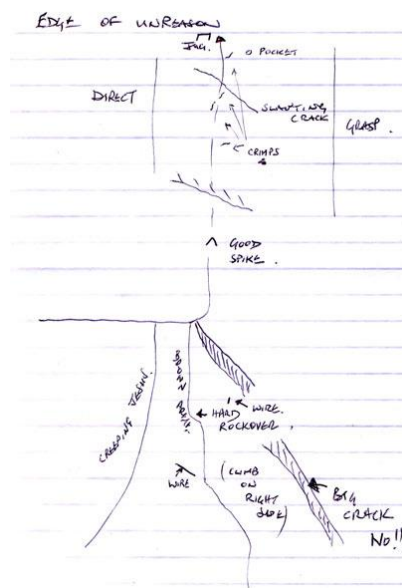 EDGE OF UNREASON
JUG.
O POCKET
DIRECT
SLANTING
CRACK
GRASP.
CRIMPS
GOOD
SPIKE.
CREEPING JESUS.
BROWN
ROCK.
WIRE.
HARD
ROCKOVER.
WIRE
(CLIMB
ON
RIGHT
SIDE)
BIG
CRACK
NO!!